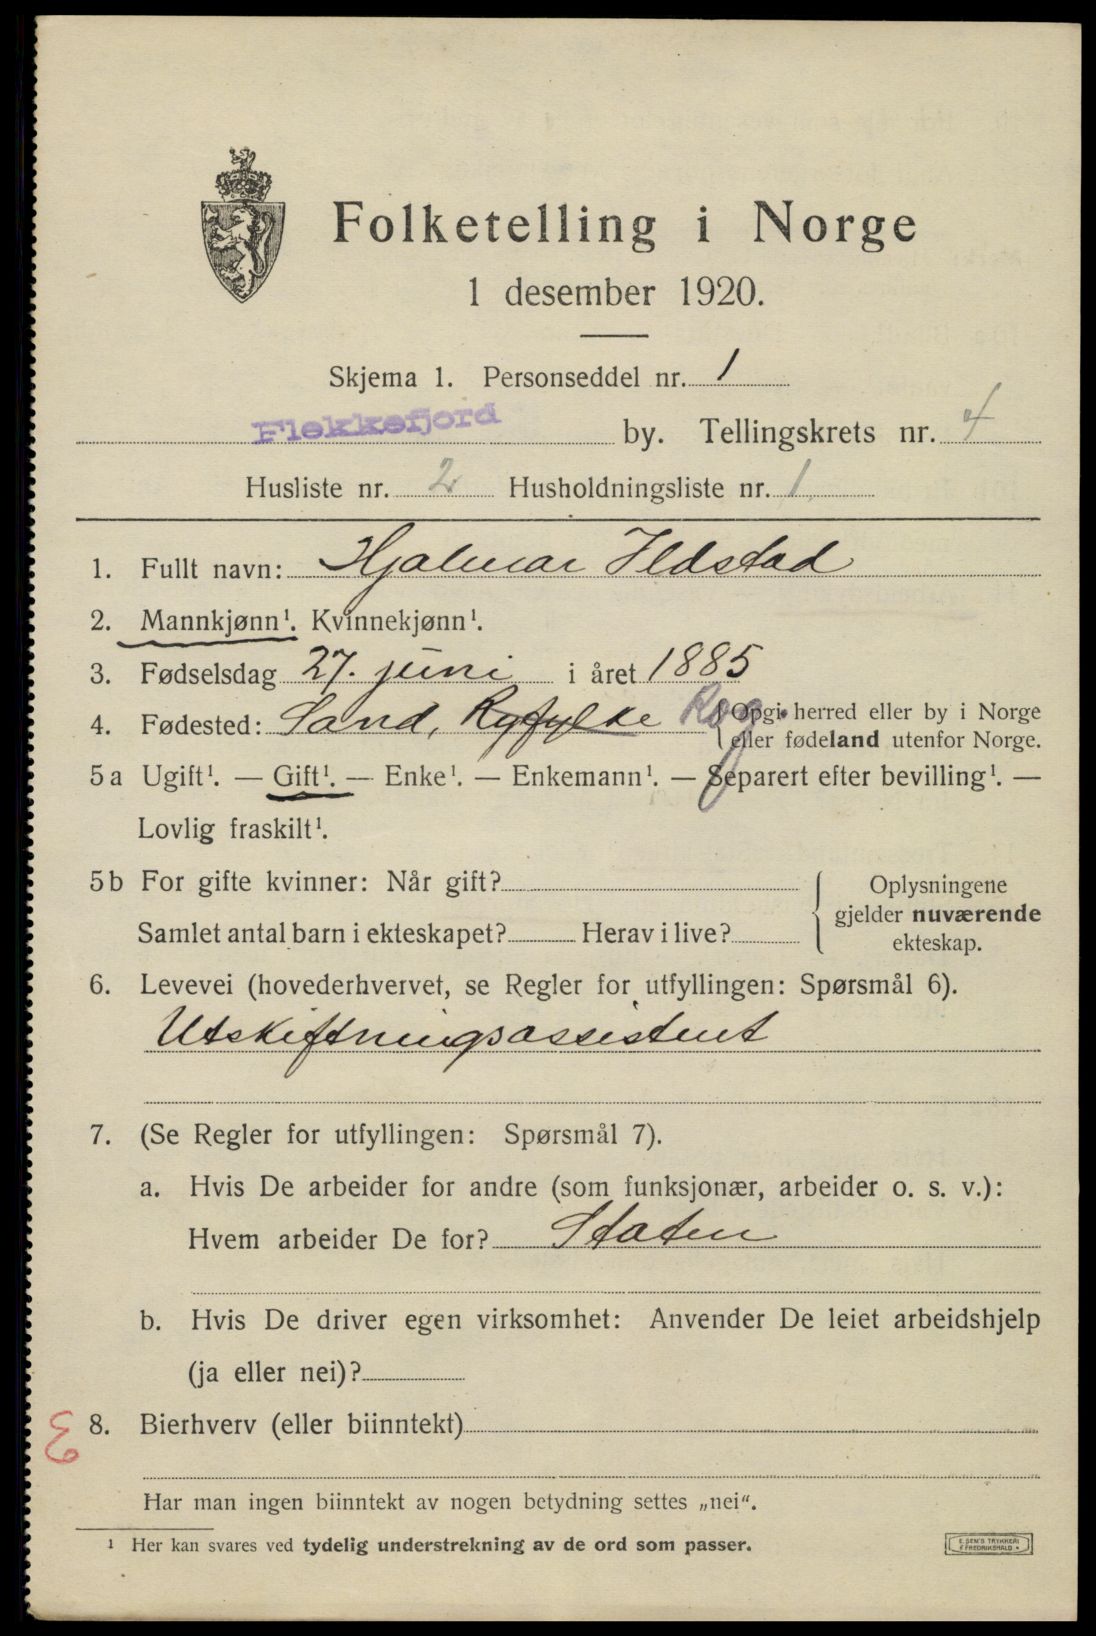 Folketelling i Norge
1 desember 1920.
Skjema 1. Personseddel nr. 1
Flekkefjord by. Tellingskrets nr. 4
Husliste nr. 2 Husholdningsliste nr. 1
1. Fullt navn: Hjalmar Ildstad
2. Mannkjønn¹. Kvinnekjønn¹.
3. Fødselsdag 27. juni i året 1885
4. Fødested: Sand, Ryfylke Rog. Opgi herred eller by i Norge
eller fødeland utenfor Norge.
5a Ugift¹. — Gift¹. — Enke¹. — Enkemann¹. — Separert efter bevilling¹. —
Lovlig fraskilt¹.
5b For gifte kvinner: Når gift? Oplysningene
gjelder nuværende
Samlet antal barn i ekteskapet? Herav i live? ekteskap.
6. Levevei (hovederhvervet, se Regler for utfyllingen: Spørsmål 6).
Utskiftningsassistent
7. (Se Regler for utfyllingen: Spørsmål 7).
a. Hvis De arbeider for andre (som funksjonær, arbeider o. s. v.):
Hvem arbeider De for? Staten
b. Hvis De driver egen virksomhet: Anvender De leiet arbeidshjelp
(ja eller nei)?
8. Bierhverv (eller biinntekt)
Har man ingen biinntekt av nogen betydning settes „nei".
¹ Her kan svares ved tydelig understrekning av de ord som passer.
E. SEM'S TRYKKERI
FREDRIKSHALD